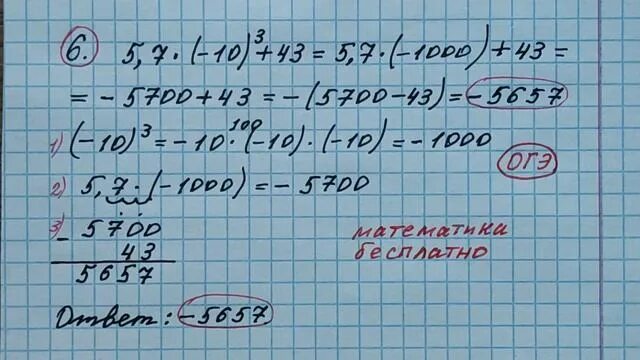 6. 5,7·(-10)³+43 = 5,7·(-1000)+43 =
= -5700+43 = -(5700-43) = -5657
1) (-10)³ = -10·(-10)·(-10) = -1000
100
ОГЭ
2) 5,7·(-1000) = -5700
3) - 5700
43
5657
математика
бесплатно
Ответ: -5657